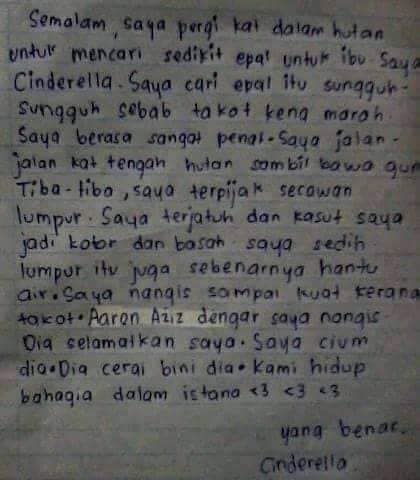 Semalam, saya pergi kat dalam hutan
untuk mencari sedikit epal untuk ibu saya
Cinderella. Saya cari epal itu sungguh-
sungguh sebab takot keng marah.
Saya berasa sangat penat. Saya jalan-
jalan kat tengah hutan sambil bawa gun
Tiba-tiba, saya terpijak secawan
lumpur. Saya terjatuh dan kasut saya
jadi kotor dan basah. saya sedih.
lumpur itu juga sebenarnya hantu
air. Saya nangis sampai kuat kerana
takot. Aaron Aziz dengar saya nangis.
Dia selamatkan saya. Saya cium
dia. Dia cerai bini dia. Kami hidup
bahagia dalam istana <3 <3 <3
yang benar,
Cinderella.